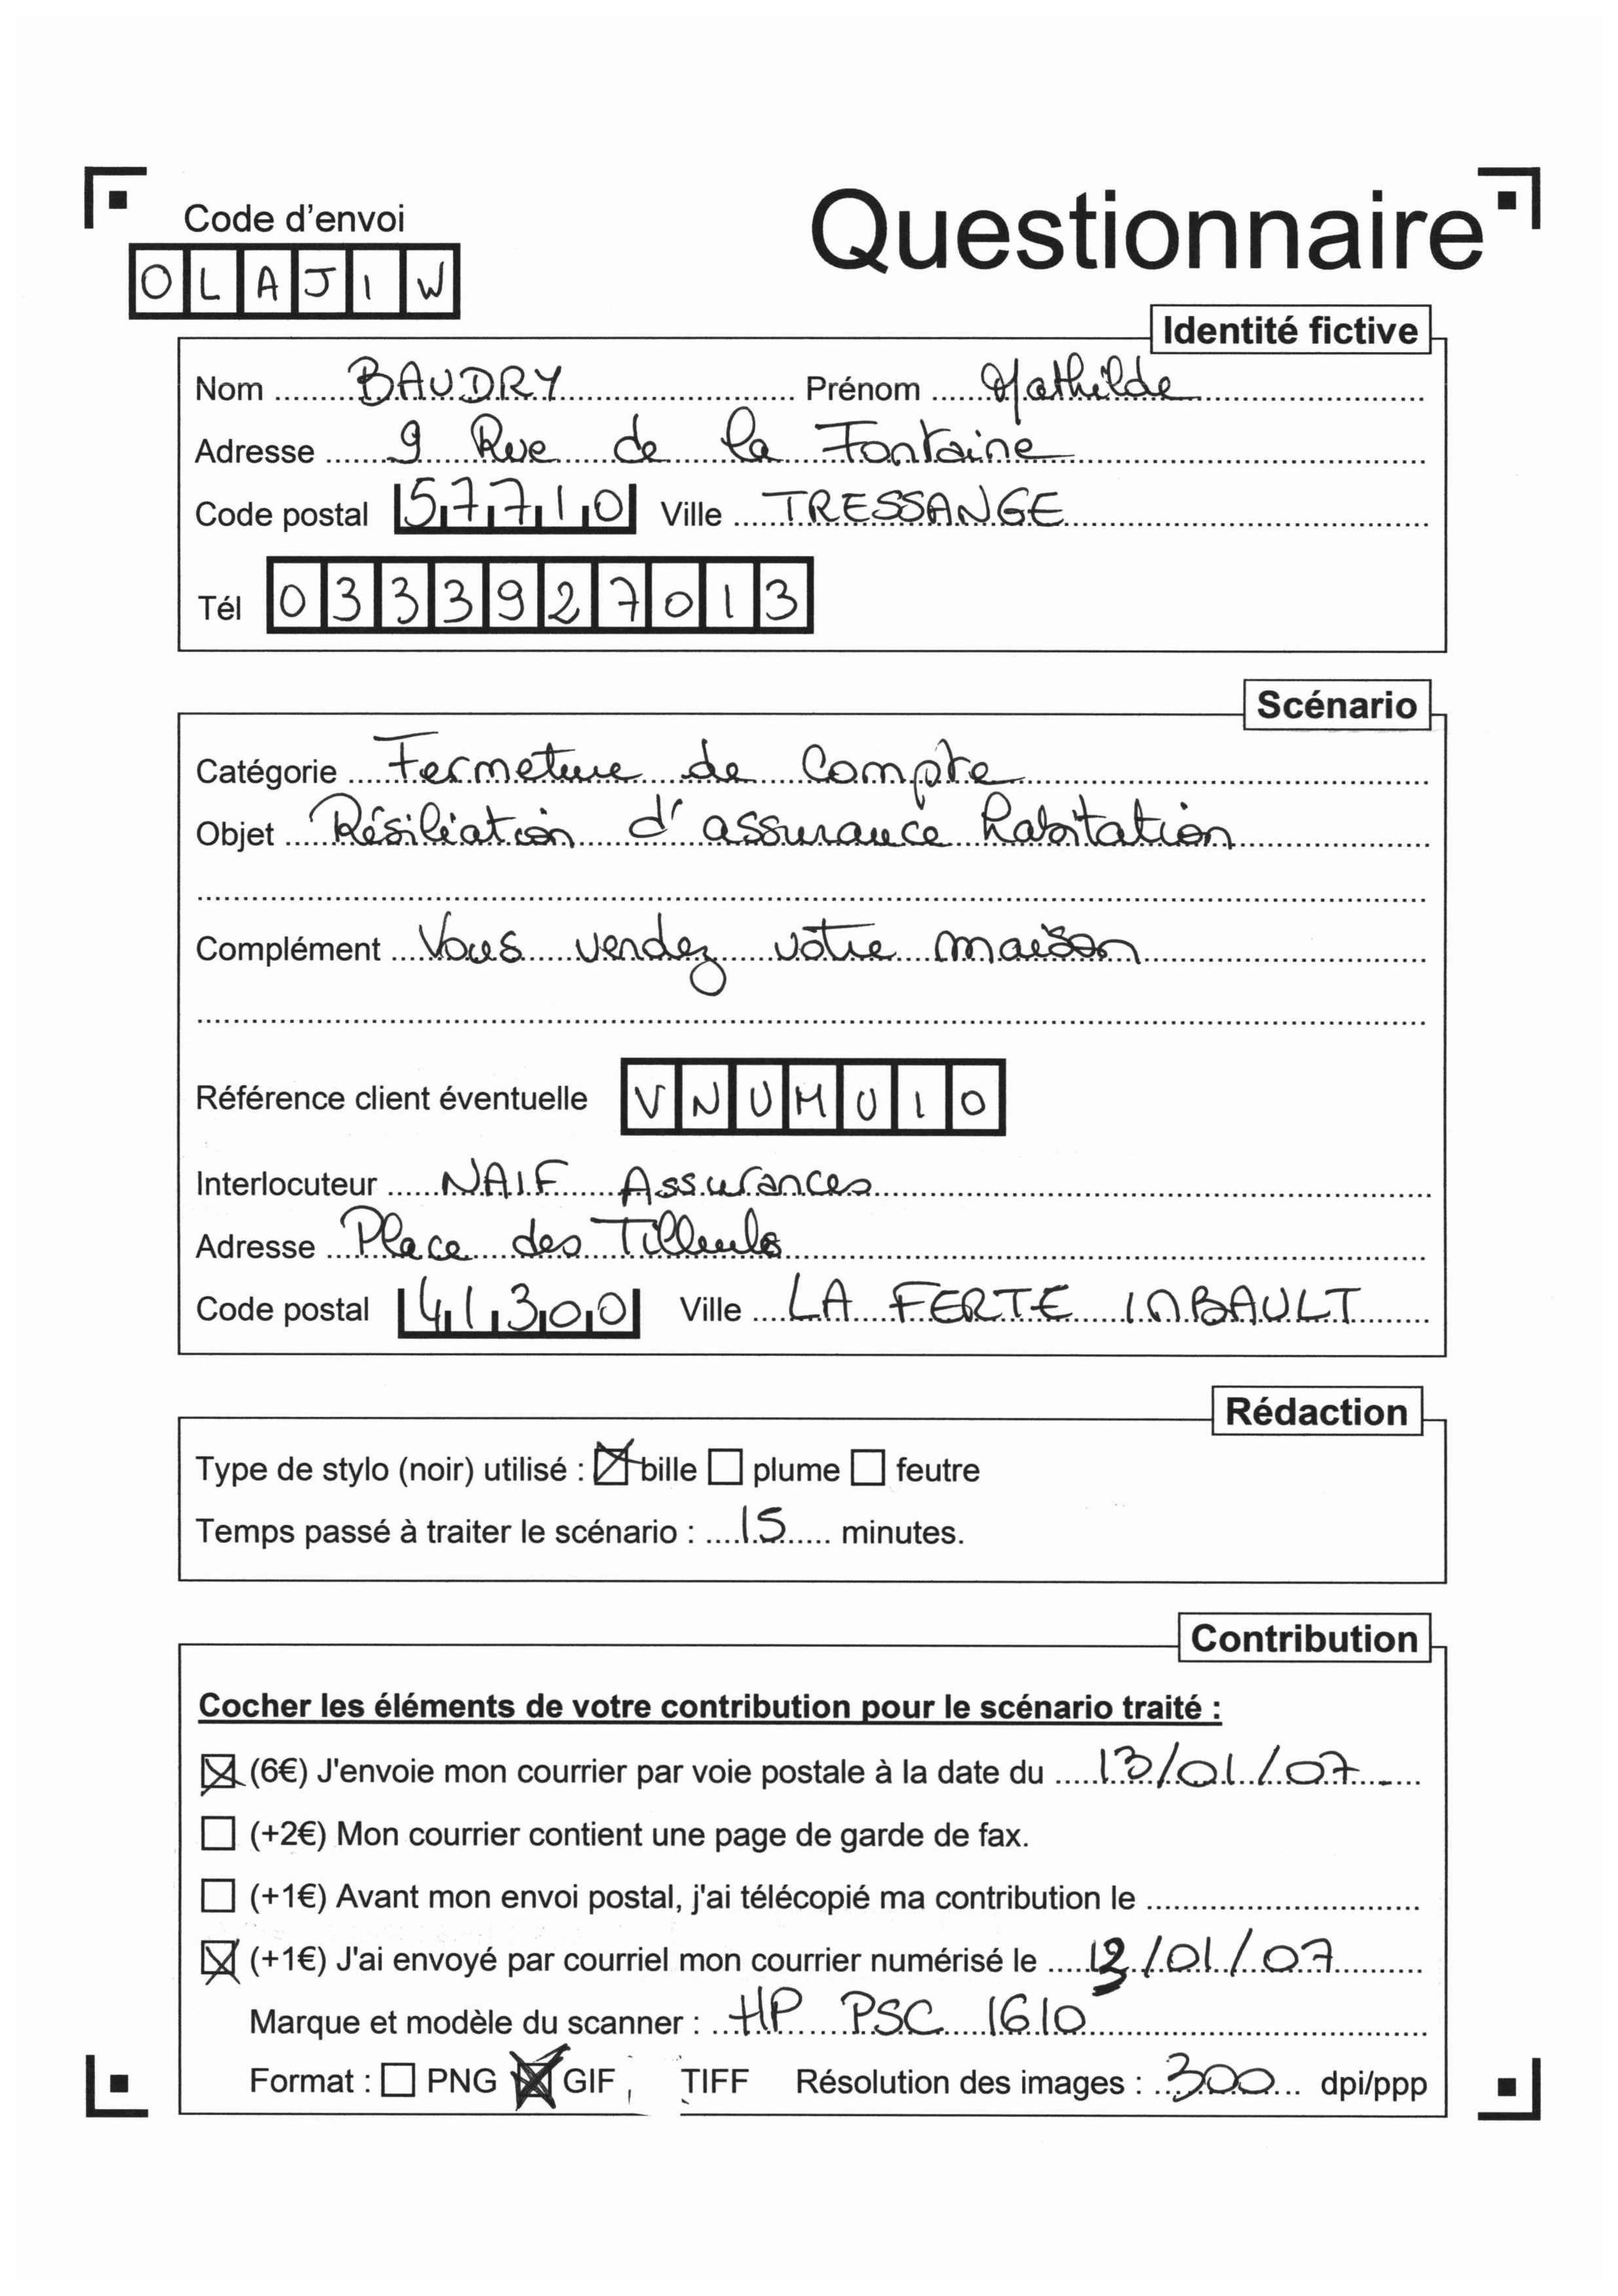 Questionnaire
Code d'envoi
OLAJIW
Identité fictive
Nom BAUDRY Prénom Mathilde
Adresse 9 Rue de la Fontaine
Code postal 57710 Ville TRESSANGE
Tél 0333927013
Scénario
Catégorie Fermeture de Compte
Objet Résiliation d'assurance habitation
Complément Vous vendez votre maison
Référence client éventuelle VNUMU10
Interlocuteur NAIF Assurances
Adresse Place des Tilleuls
Code postal 41300 Ville LA FERTE INBAULT
Rédaction
Type de stylo (noir) utilisé : bille plume feutre
Temps passé à traiter le scénario : 15 minutes.
Contribution
Cocher les éléments de votre contribution pour le scénario traité :
(6€) J'envoie mon courrier par voie postale à la date du 13/01/07
(+2€) Mon courrier contient une page de garde de fax.
(+1€) Avant mon envoi postal, j'ai télécopié ma contribution le
(+1€) J'ai envoyé par courriel mon courrier numérisé le 13/01/07
Marque et modèle du scanner : HP PSC 1610
Format : PNG GIF TIFF Résolution des images : 300 dpi/ppp